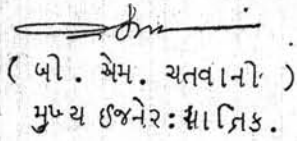 ( બી. એમ. ચતવાની )
મુખ્ય ઈજનેર: યાંત્રિક.